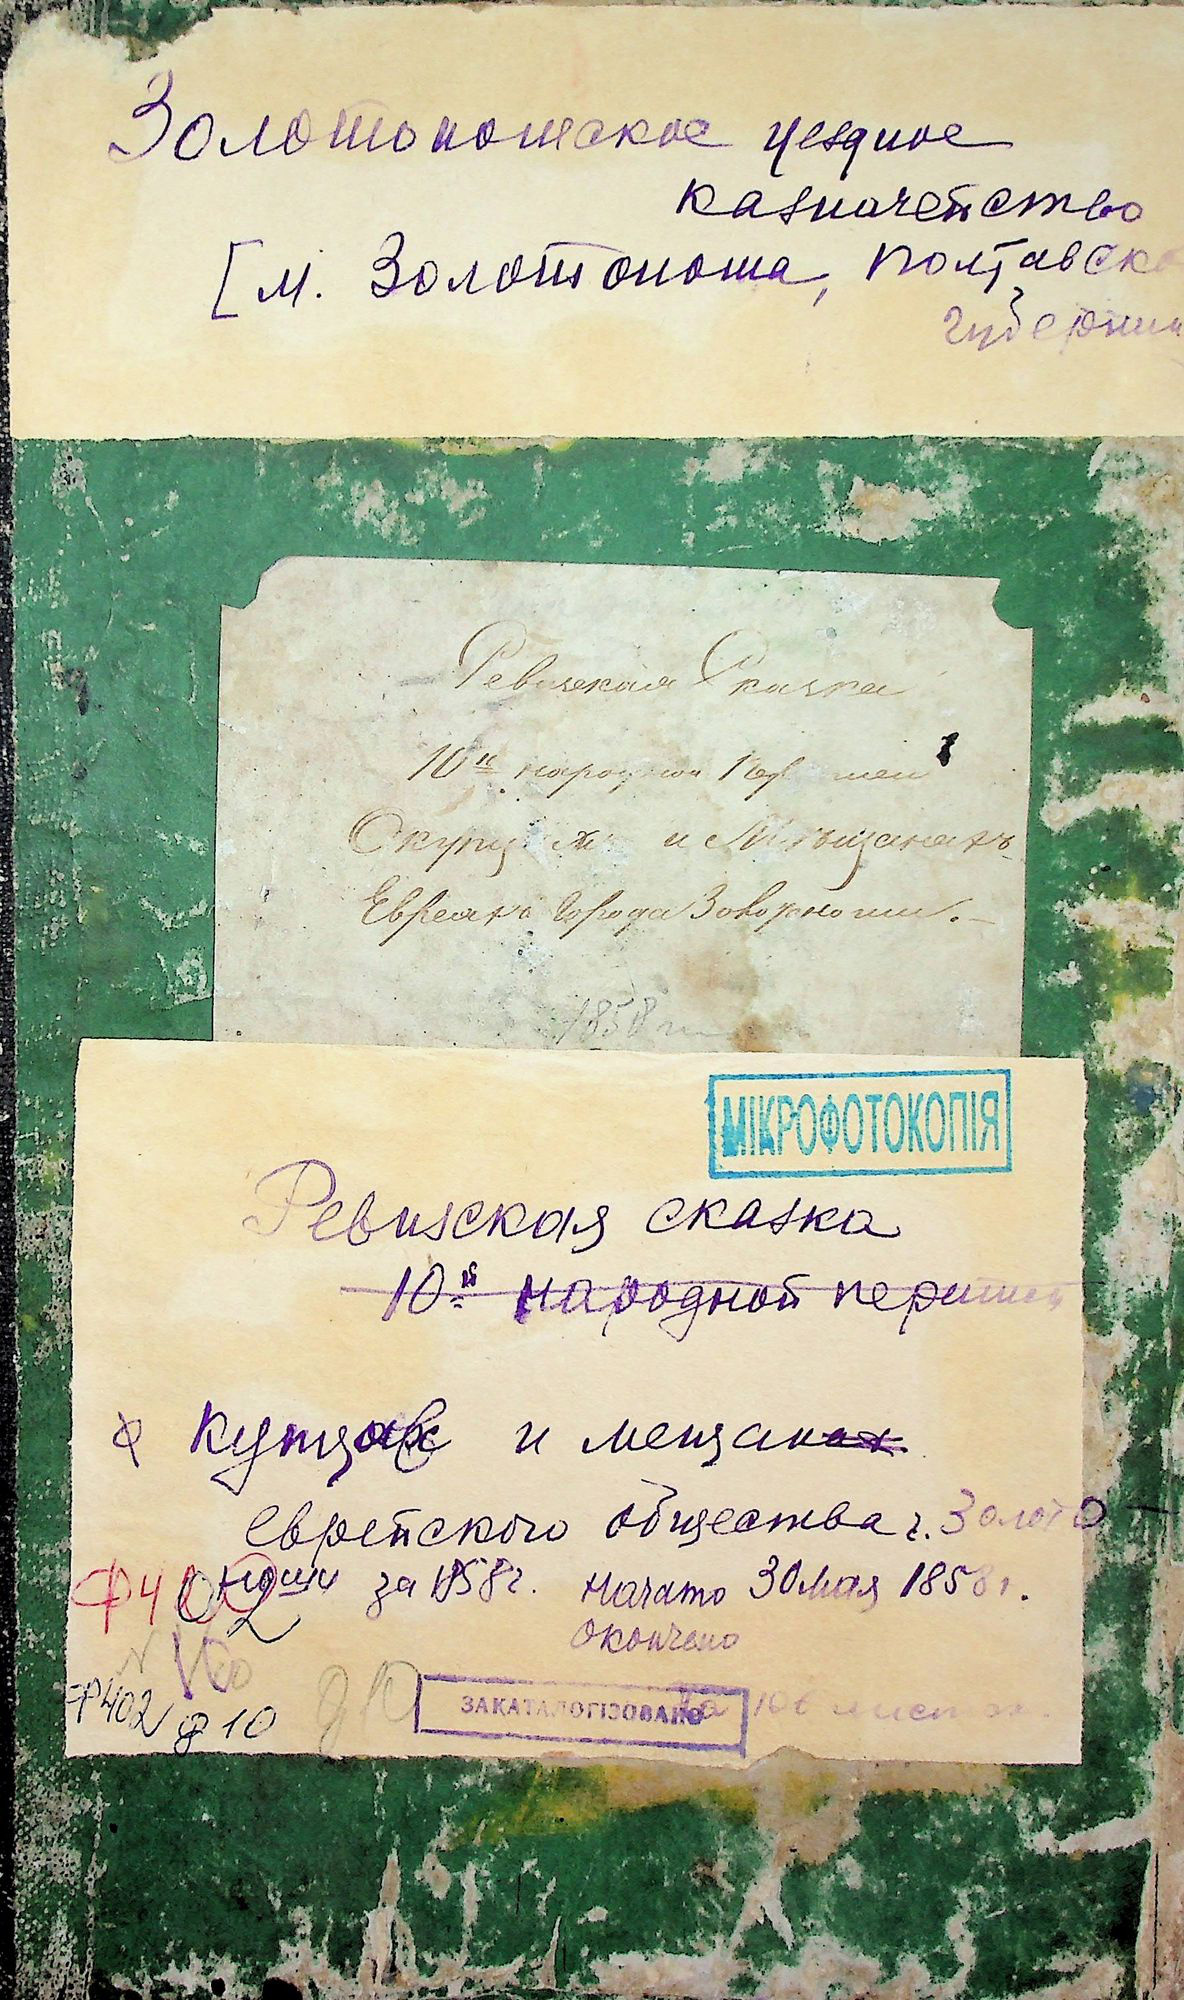 Золотоношское уездное
казначейство
[м. Золотоноша, Полтавско
губернии
Ревизская Сказка
10й народной
О купцахъ и Мѣщанахъ
Евреяхъ Города Золотоноши.
1858
МІКРОФОТОКОПІЯ
Ревизская сказка
10й народной переписи
о купцах и мещанах
еврейского общества г. Золото-
ноши за 1858 г. начато 30 мая 1858 г.
окончено
Ф 402
Ф 402 д 10 д 10 ЗАКАТАЛОГІЗОВАНО На листах.